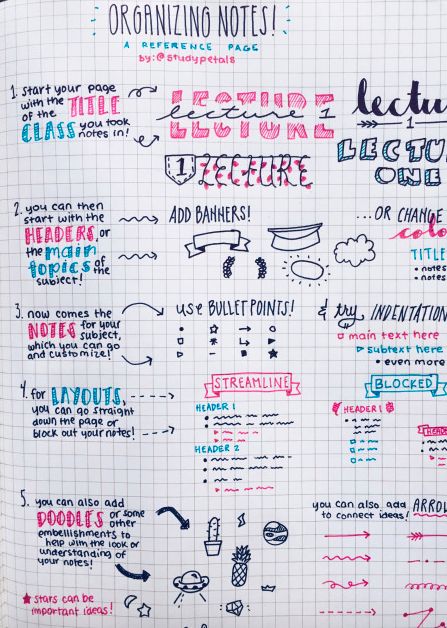 ORGANIZING NOTES!
A REFERENCE PAGE
by: @studypetals
1. start your page
with the TITLE
of the
CLASS you took
notes in!
LECTURE
lecture 1
LECTURE
1 LECTURE
lectu
1
LECTU
ONE
2. you can then
start with the
HEADERS, or
the main
topics of the
subject!
ADD BANNERS!
...OR CHANGE
colo
TITLE
• notes
• notes
3. now comes the
NOTES for your
subject,
which you can go
and customize!
USE BULLET POINTS!
& try INDENTATION
main text here
subtext here
• even more
4. for LAYOUTS,
you can go straight
down the page or
block out your notes!
STREAMLINE
HEADER 1
HEADER 2
BLOCKED
HEADER 1
5. you can also add
DOODLES or some
other
embellishments to
help with the look or
understanding of
your notes!
★ stars can be
important ideas!
you can also add ARROW
to connect ideas!